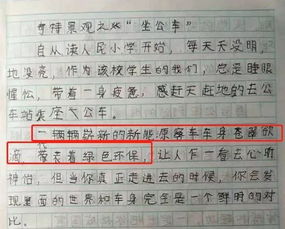 奇特景观之“坐公车”
自从读人民小学开始，每天天没明，
地没亮，作为该校学生的我们，总是睡眼
惺忪，带着一身疲惫，感赶天赶地的去公
车站乘座公车。
一辆辆崭新的新能源餐车车身
，带表着绿色环保，让人乍一看去心旷
神怡，但当你真正走进去的时候，你会发
现里面的世界和车身完全是一个鲜明的对
比。